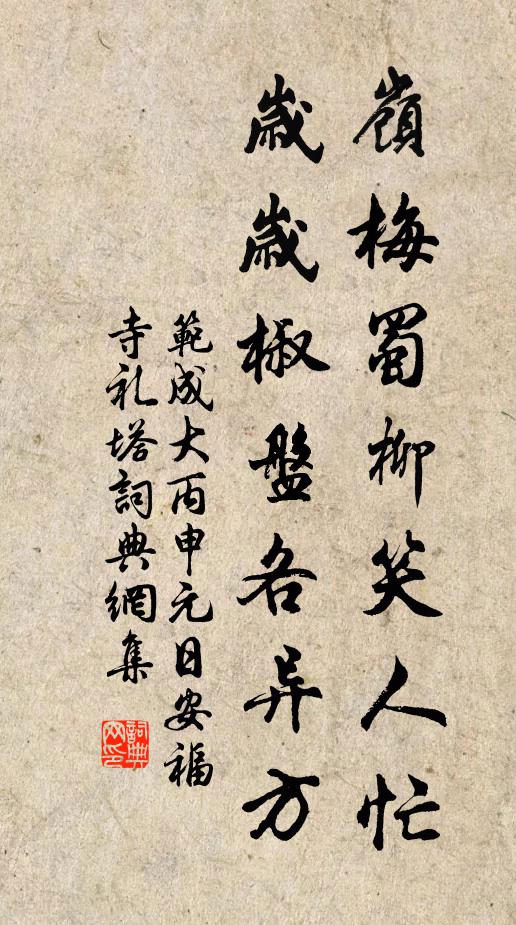 嶺梅蜀柳笑人忙
歲歲椒盤各异方
範成大丙申元日安福
寺礼塔詞典網集
詞典
网印